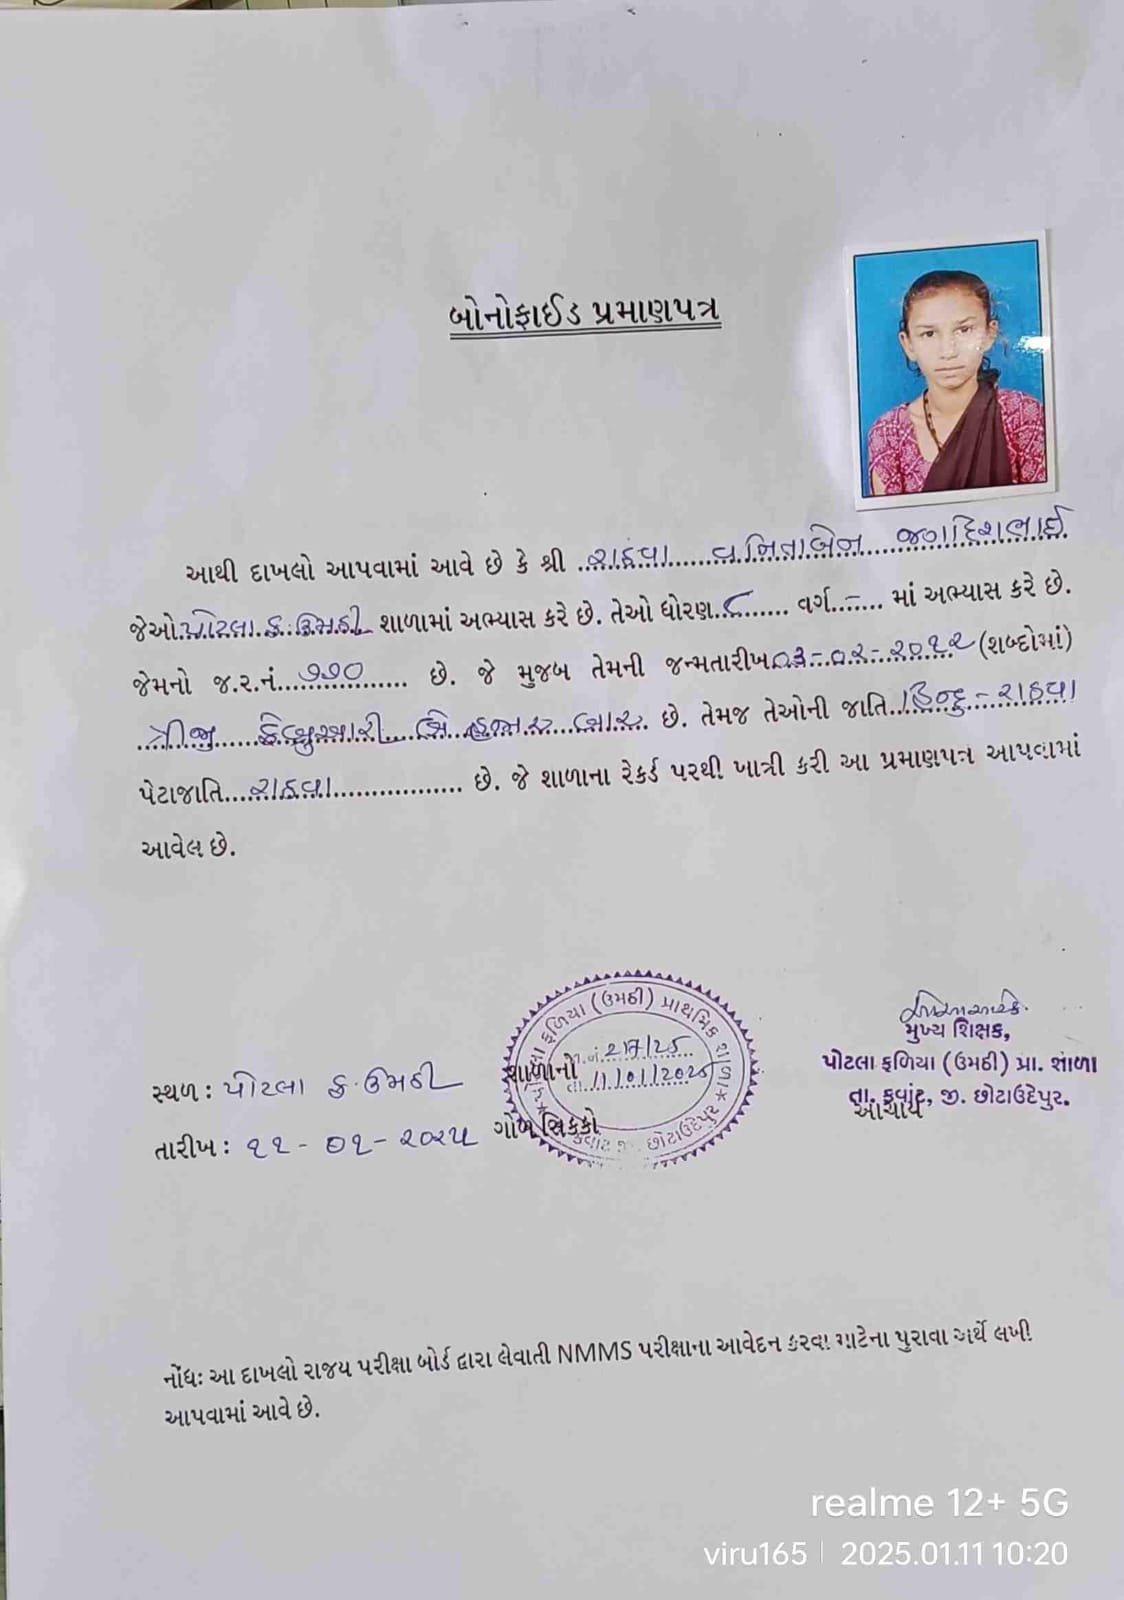 બોનોફાઈડ પ્રમાણપત્ર
આથી દાખલો આપવામાં આવે છે કે શ્રી રાઠવા વનિતાબેન જગદિશભાઈ
જેઓ પોટલા ફ. ઉમઠી શાળામાં અભ્યાસ કરે છે. તેઓ ધોરણ ૮ વર્ગ - માં અભ્યાસ કરે છે.
જેમનો જ.ર.નં. ૧૧૦ છે. જે મુજબ તેમની જન્મતારીખ ૦૩-૦૨-૨૦૧૨ (શબ્દોમાં)
ત્રીજી ફેબ્રુઆરી બે હજાર બાર છે. તેમજ તેઓની જાતિ હિન્દુ - રાઠવા
પેટાજાતિ રાઠવા છે. જે શાળાના રેકર્ડ પરથી ખાત્રી કરી આ પ્રમાણપત્ર આપવામાં
આવેલ છે.
સ્થળ: પોટલા ફ. ઉમઠી
તારીખ: ૧૧-૦૧-૨૦૨૫
શાળાનો
ગોળ સિક્કો
ફળિયા (ઉમઠી) પ્રાથમિક શાળા
217/25
11/01/2025
છોટાઉદેપુર
મુખ્ય શિક્ષક,
પોટલા ફળિયા (ઉમઠી) પ્રા. શાળા
તા. કવાંટ, જી. છોટાઉદેપુર.
આચાર્ય
નોંધ: આ દાખલો રાજ્ય પરીક્ષા બોર્ડ દ્વારા લેવાતી NMMS પરીક્ષાના આવેદન કરવા માટેના પુરાવા અર્થે લખી
આપવામાં આવે છે.
realme 12+ 5G
viru165 | 2025.01.11 10:20